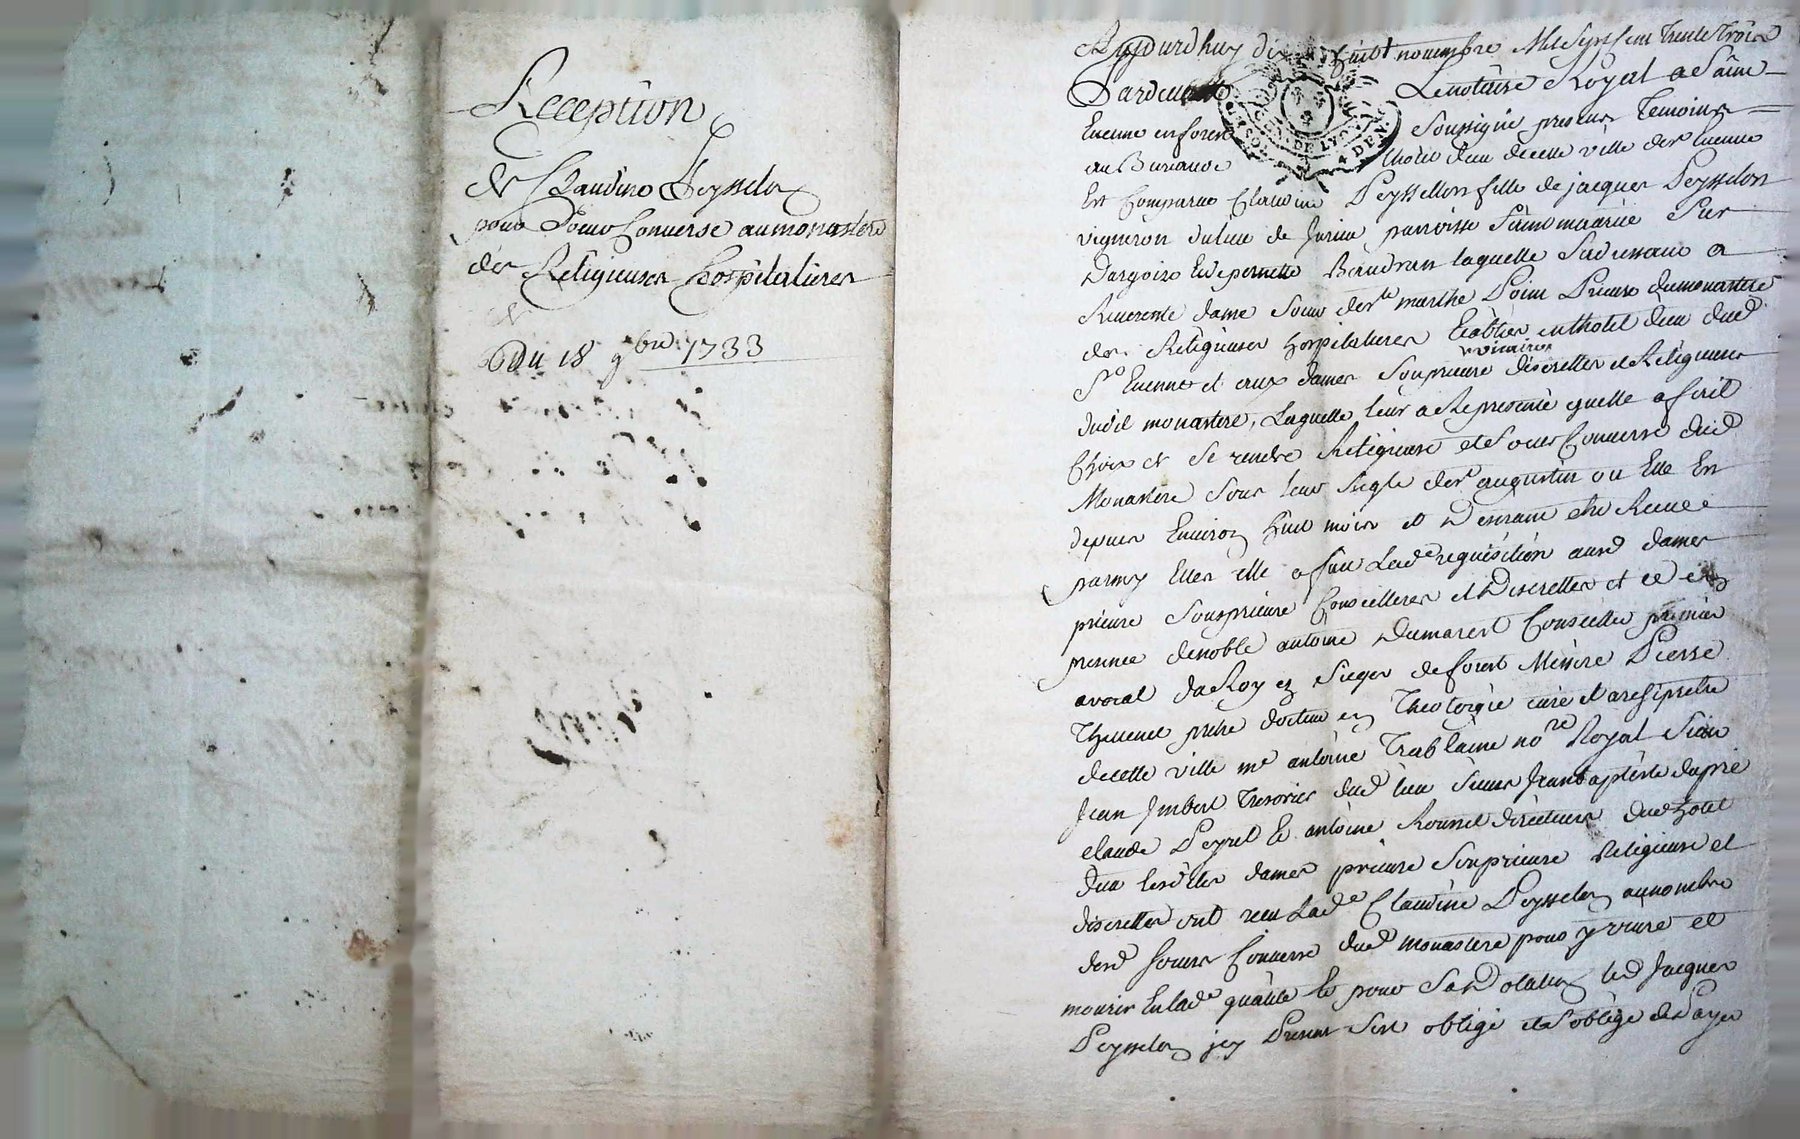 Reception
de Claudine Peysselon
pour Soeur Converse au monastere
des Religieuses hospitalieres
de
Du 18 9bre 1733
Aujourdhuy dix huit novembre Mil Sept cen Trente Trois
Pardevant Le notaire Royal a Saint
Etienne en forest Soussigné presens Temoins
au Bureau de lhotel dieu de cette ville de St Etienne
Est Comparue Claudine Peysselon fille de jacques Peysselon
vigneron du lieu de parroisse Saint maurice Sur
Dargoire Et de pernette Baudran laquelle Sadressant a
Reverente dame Soeur de Ste marthe Prieure du monastere
des Religieuses hospitalieres Etablies en lhotel dieu dud
St Etienne et aux dames Souprieure vicaires discrettes et Religieuses
dudit monastere, Laquelle leur a Representé quelle a fait
Choix de Se rendre Religieuse et Soeur Converse dud
Monastere Sous leur Regle de St augustin ou Elle Est
depuis Environ huit mois et Desirant etre Receue
parmy Elles elle a fait Lade requisition ausd dames
prieure Sousprieure Conseilleres et Discrettes et ce en
presence de noble antoine Dumarest Conseiller premier
avocat du Roy en Siege de forest Messire Pierre
Thevenet pretre docteur en Theologie curé et archipretre
de cette ville me antoine Trablaine nore Royal Sieur
Jean Jmbert Tresorier dud lieu Sieurs Jean baptiste dupré
claude Peyret Et antoine Rousset directeurs dud hotel
dieu lesdites dames prieure Souprieure Religieuse et
discrettes ont receu Lade Claudine Peysselon au nombre
desd Soeurs Converse dud monastere pour y vivre et
mourir En lade qualité Et pour Sa Dotation led Jacques
Peysselon jcy Present Sest obligé et Soblige de Payer